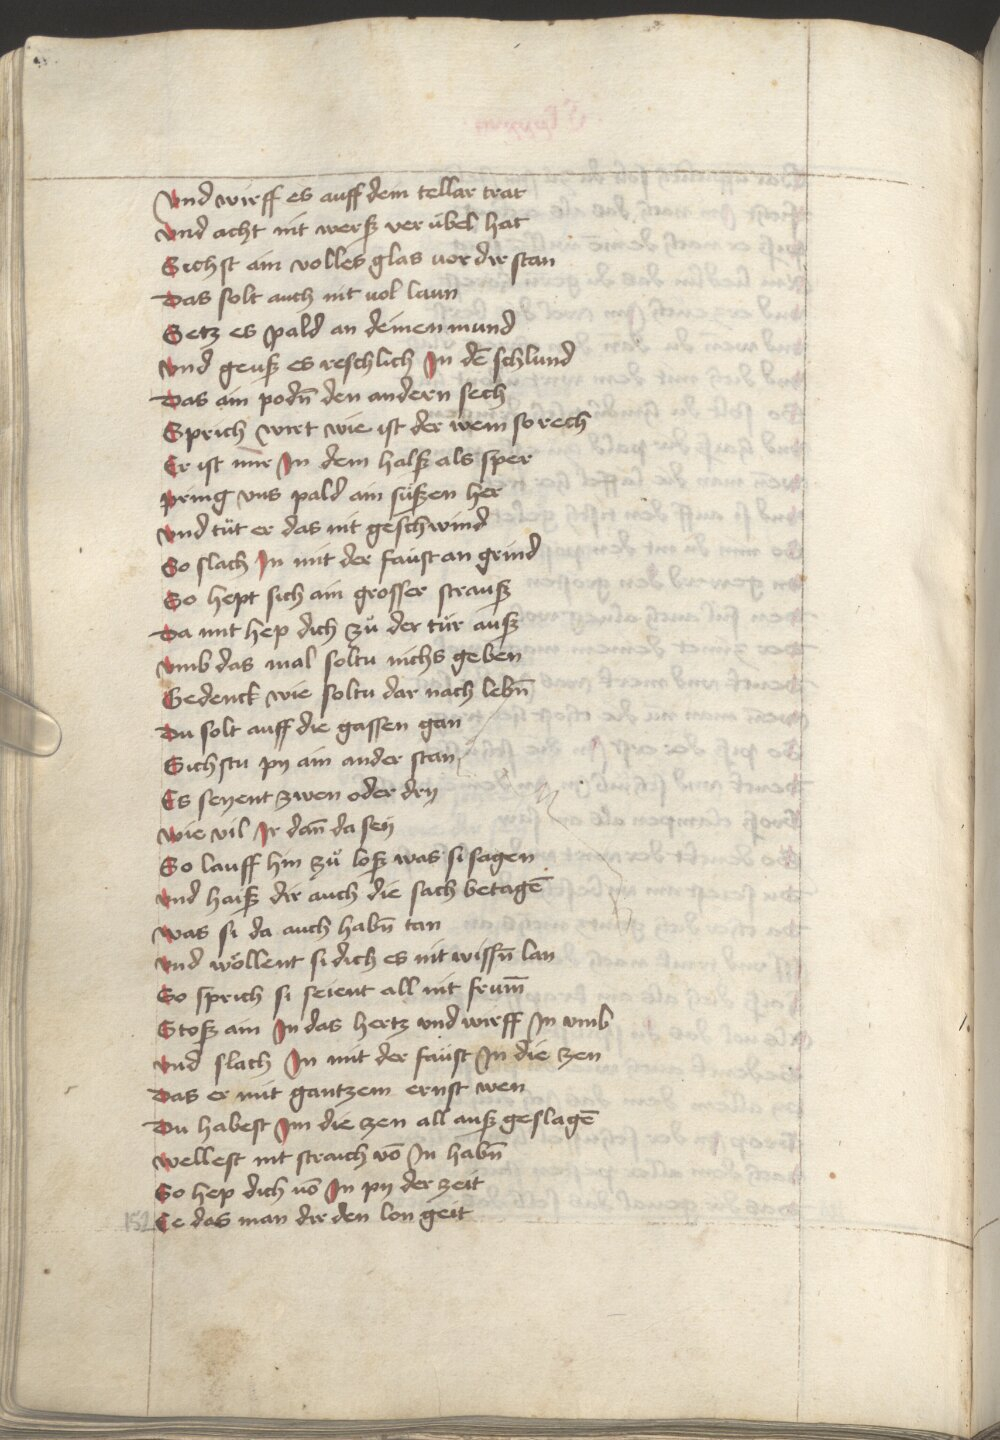 Vnd wirff es auff dein tellar trat
Vnd acht nit werß ver übel hat
Sichst ain volles glas vor dir stan
Das solt auch nit uol laun
Setz es pald an deinen mund
Vnd geuß es reschlich In dē schlund
Das ain podn̄ den andern sech
Sprich wirt wie ist der wein so rech
Er ist mir In dem halß als sper
pring vns pald ain süßen her
Vnd tüt er das nit geschwind
So slach In mit der faust an grind
So hept sich ain grosser strauß
Da mit hep dich zů der tür auß
Vmb das mal soltu nichs geben
Gedenck wie soltu dar nach lebn̄
Du solt auff die gassen gan
Sichstu py ain ander stan
Es seyent zwen oder dry
wie vil Ir dan̄ da sey
So lauff hin zů loß was si sagen
Vnd haiß dir auch die sach betagē
was si da auch habn̄ tan
Vnd wöllent si dich es nit wissn̄ lan
So sprich si seient all nit frum̄
Stoß ain In das hertz vnd wirff In vmb
Vnd slach In mit der faüst In die zen
Das er mit gantzem ernst wen
Du habest Im die zen all auß geslagē
wellest nit straich vō In habn̄
So hep dich vō In py der zeit
Ee das man dir den lon geit
152